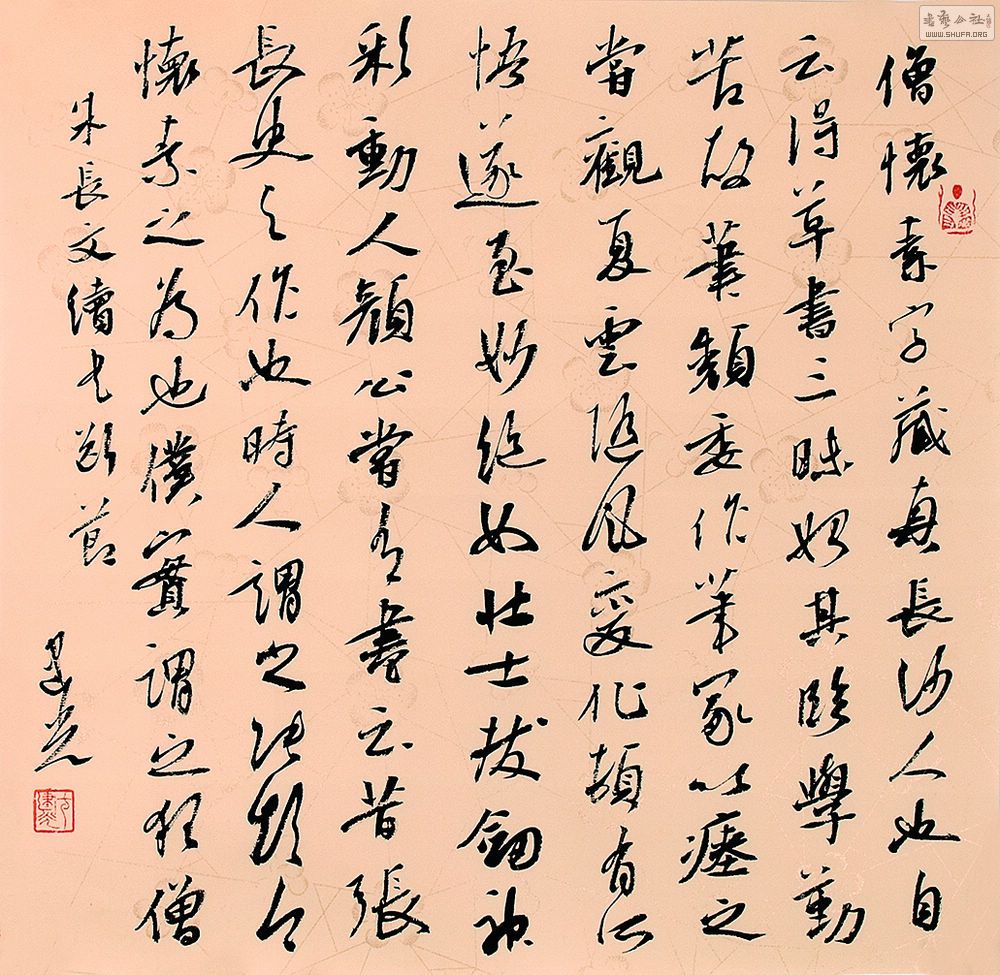 僧懷素字藏真長沙人也自
云得草書三昧始其臨學勤
苦故筆頹委作筆冢以瘞之
嘗觀夏雲隨風變化頓有所
悟遂至妙絕如壯士拔劍神
彩動人顏公嘗有書云昔張
長史之作也時人謂之張顛今
懷素之為也僕實謂之狂僧
朱長文續書斷節
建光
書藝公社
WWW.SHUFA.ORG